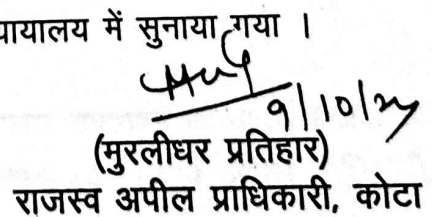 यायालय में सुनाया गया ।
9/10/24
(मुरलीधर प्रतिहार)
राजस्व अपील प्राधिकारी, कोटा